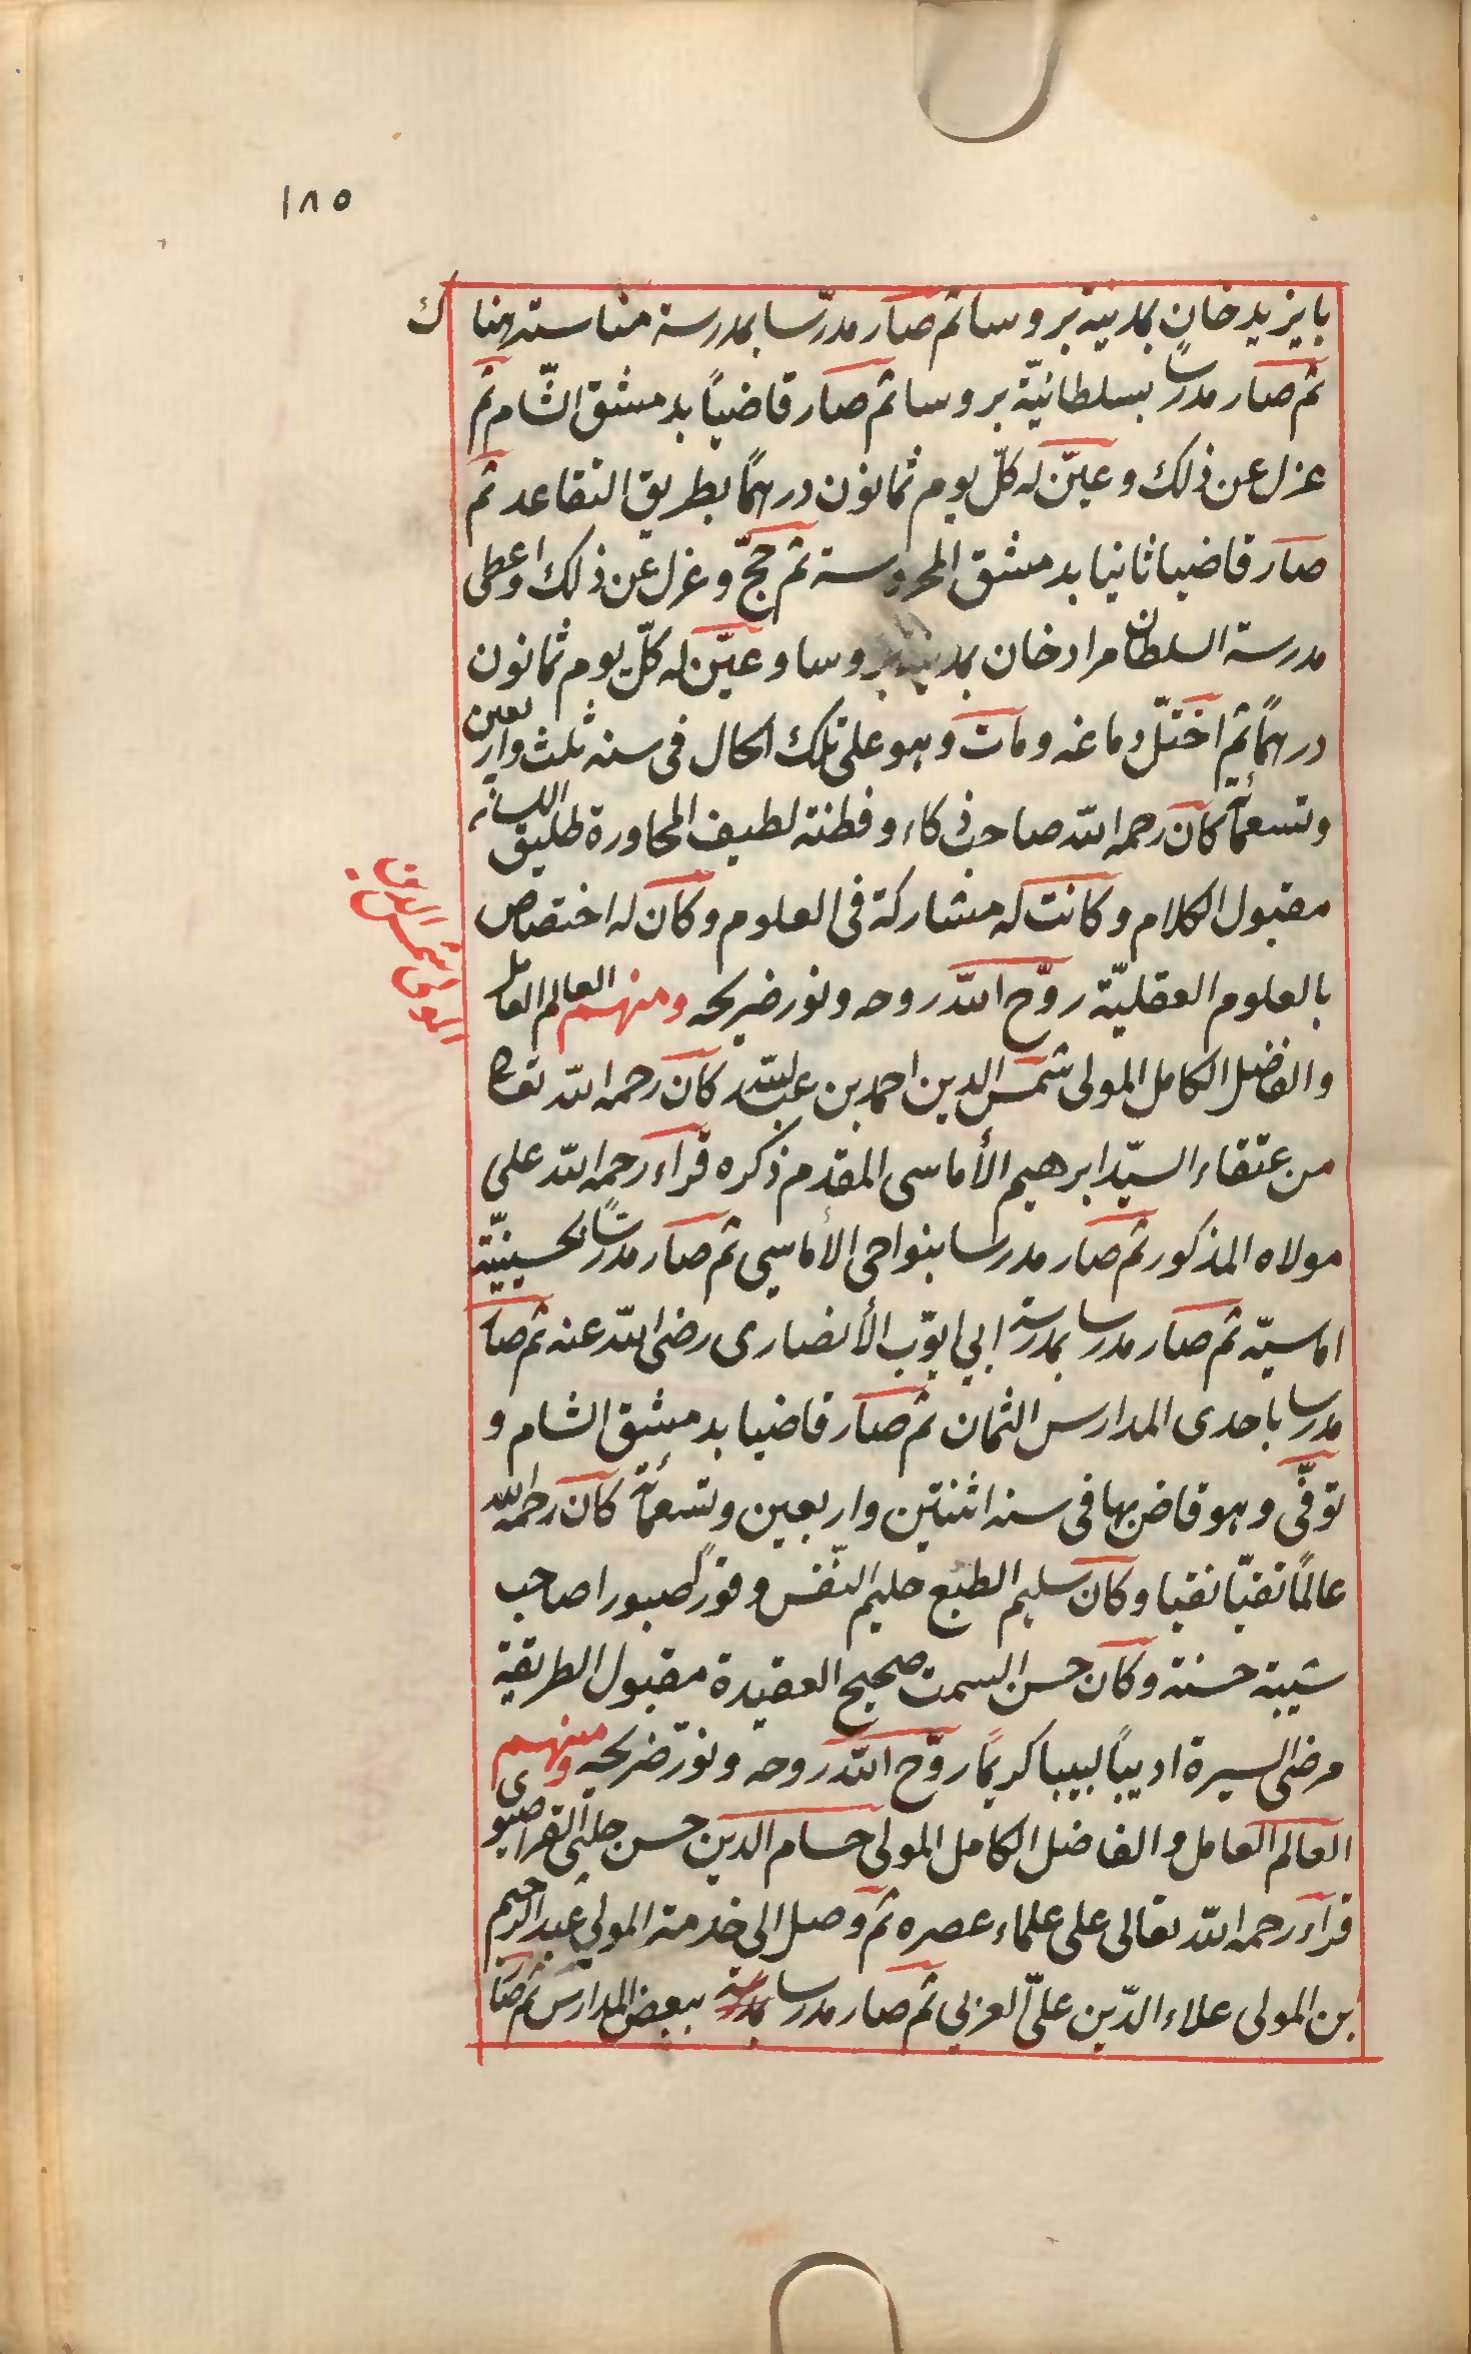 ١٨٥
بايزيد خان بمدينة بروسا ثم صار مدرّسا بمدرسة مناستر هناك
ثم صار مدرسا بسلطانيّة بروسا ثم صار قاضياً بدمشق الشّام ثم
عزل عن ذلك وعيّن له كلّ يوم ثمانون درهمًا بطريق التقاعد ثم
صار قاضيا ثانيا بدمشق المحروسة ثم حجّ وعزل عن ذلك واعطى
مدرسة السلطان مراد خان بمدينة بروسا وعيّن له كلّ يوم ثمانون
درهمًا ثم اختلّ دماغه ومات وهو على تلك الحال فى سنه ثلث واربعين
وتسعمائة كان رحمه الله صاحب ذكاء وفطنة لطيف المحاورة طليق اللسان
مقبول الكلام وكانت له مشاركة فى العلوم وكان له اختصاص
بالعلوم العقليّة روّح الله روحه ونور ضريحه ومنهم العالم العامل
المولى شمس الدين
والفاضل الكامل المولى شمس الدين احمد بن عبدالله كان رحمه الله تعالى
من عتقاء السيّد ابرهيم الأماسى المقدم ذكره قراء رحمه الله على
مولاه المذكور ثم صار مدرسا بنواحى الأماسى ثم صار مدرسًا بحسينيّة
اماسيّه ثم صار مدرسا بمدرسة ابي ايوّب الأنصارى رضى الله عنه ثم صار
مدرسا باحدى المدارس الثمان ثم صار قاضيا بدمشق الشام و
توفّى وهو قاض بها فى سنه اثنتين واربعين وتسعمائة كان رحمه الله
عالمًا تقيّا نقيا وكان سليم الطبع حليم النّفس وقورًا صبورا صاحب
شيبة حسنة وكان حسن السمت صحيح العقيدة مقبول الطريقة
مرضى السيرة اديباً لبيبا كريمًا روّح الله روحه ونوّر ضريحه ومنهم
العالم العامل والفاضل الكامل المولى حسام الدين حسن جلبى القراصيوى
قراء رحمه الله تعالى على علماء عصره ثم وصل الى خدمة المولى عبد الرحيم
بن المولى علاء الدّين علىّ العربي ثم صار مدرسا بمدرسة ببعض المدارس ثم صار